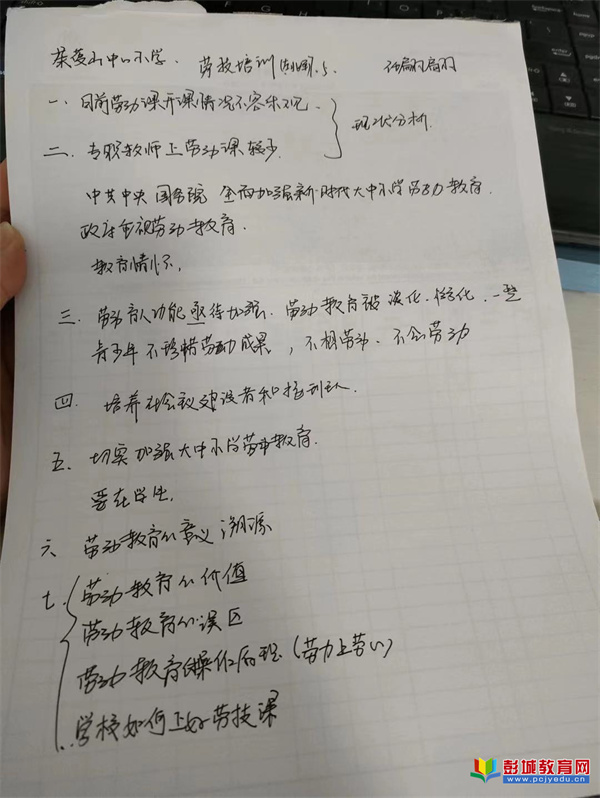 中心小学. 劳技培训 2023.8.5.
一、目前劳动课开课情况不容乐观.
二、专职教师上劳动课较少.
现状分析.
中共中央 国务院 全面加强新时代大中小学劳动教育.
政府重视劳动教育.
教育情怀,
三、劳动育人功能亟待加强. 劳动教育被淡化、弱化. 一些
青少年不珍惜劳动成果, 不想劳动、不会劳动
四、培养社会主义建设者和接班人
五、切实加强大中小学劳动教育.
要在学生,
六 劳动教育的意义 溯源
七. 劳动教育的价值
劳动教育的误区
劳动教育操作原理(劳力上劳心)
学校如何上好劳技课
彭城教育网
www.pcjyedu.cn